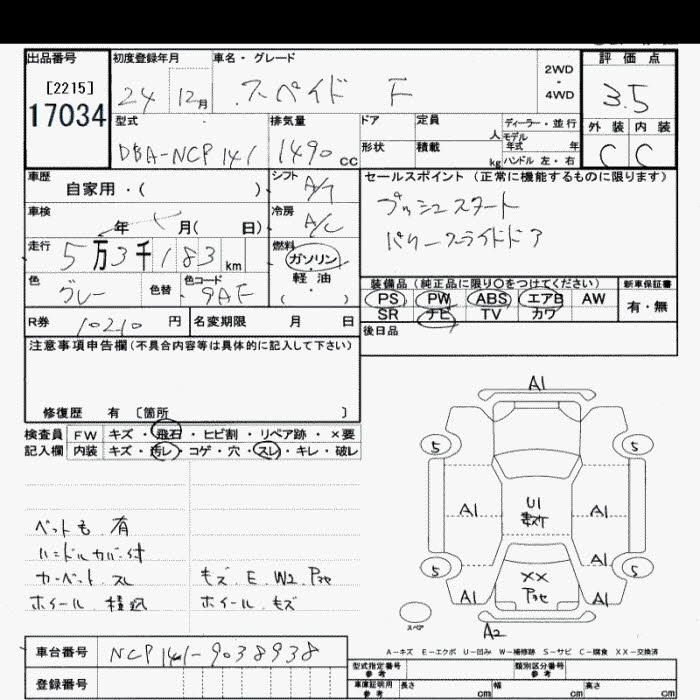 出品番号 初度登録年月 車名・グレード 2WD・4WD 評価点
[2215] 17034 24 12月 スペイド F 3.5
型式 排気量 ドア 定員 人 ディーラー・並行 外装 内装
DBA-NCP141 1490cc 形状 積載 kg モデル年式 年 ハンドル 左・右 C C
車歴 自家用・( ) シフト A/T セールスポイント(正常に機能するものに限ります)
車検 年 月( 日) 冷房 A/C プッシュスタート
走行 5万3千183km 燃料 ガソリン・軽油 ( ) パワースライドドア
色 グレー 色替 色コード 9AF 装備品(純正品に限り〇をつけてください) 新車保証書
PS PW ABS エアB AW 有・無
R券 10210円 名変期限 月 日 SR ナビ TV カワ
後日品
注意事項申告欄(不具合内容等は具体的に記入して下さい)
修復歴 有 〔箇所 〕
検査員 FW キズ・飛石・ヒビ割・リペア跡・×要
記入欄 内装 キズ・汚レ・コゲ・穴・スレ・キレ・破レ
ペットも 有
ハンドルカバー付
カーペット スレ
キズ.E.W2.
ホイール
ホイール.キズ
A1
5 5
A1 U1 A1
A1
5 XX 5
A1 A1
スペア A2
A-キズ E-エクボ U-凹み W-補修跡 S-サビ C-腐食 XX-交換済
車台番号 NCP141-9038938
登録番号
型式指定番号 参考 類別区分番号 参考
車庫証明用 参考 長さ cm 幅 cm 高さ cm